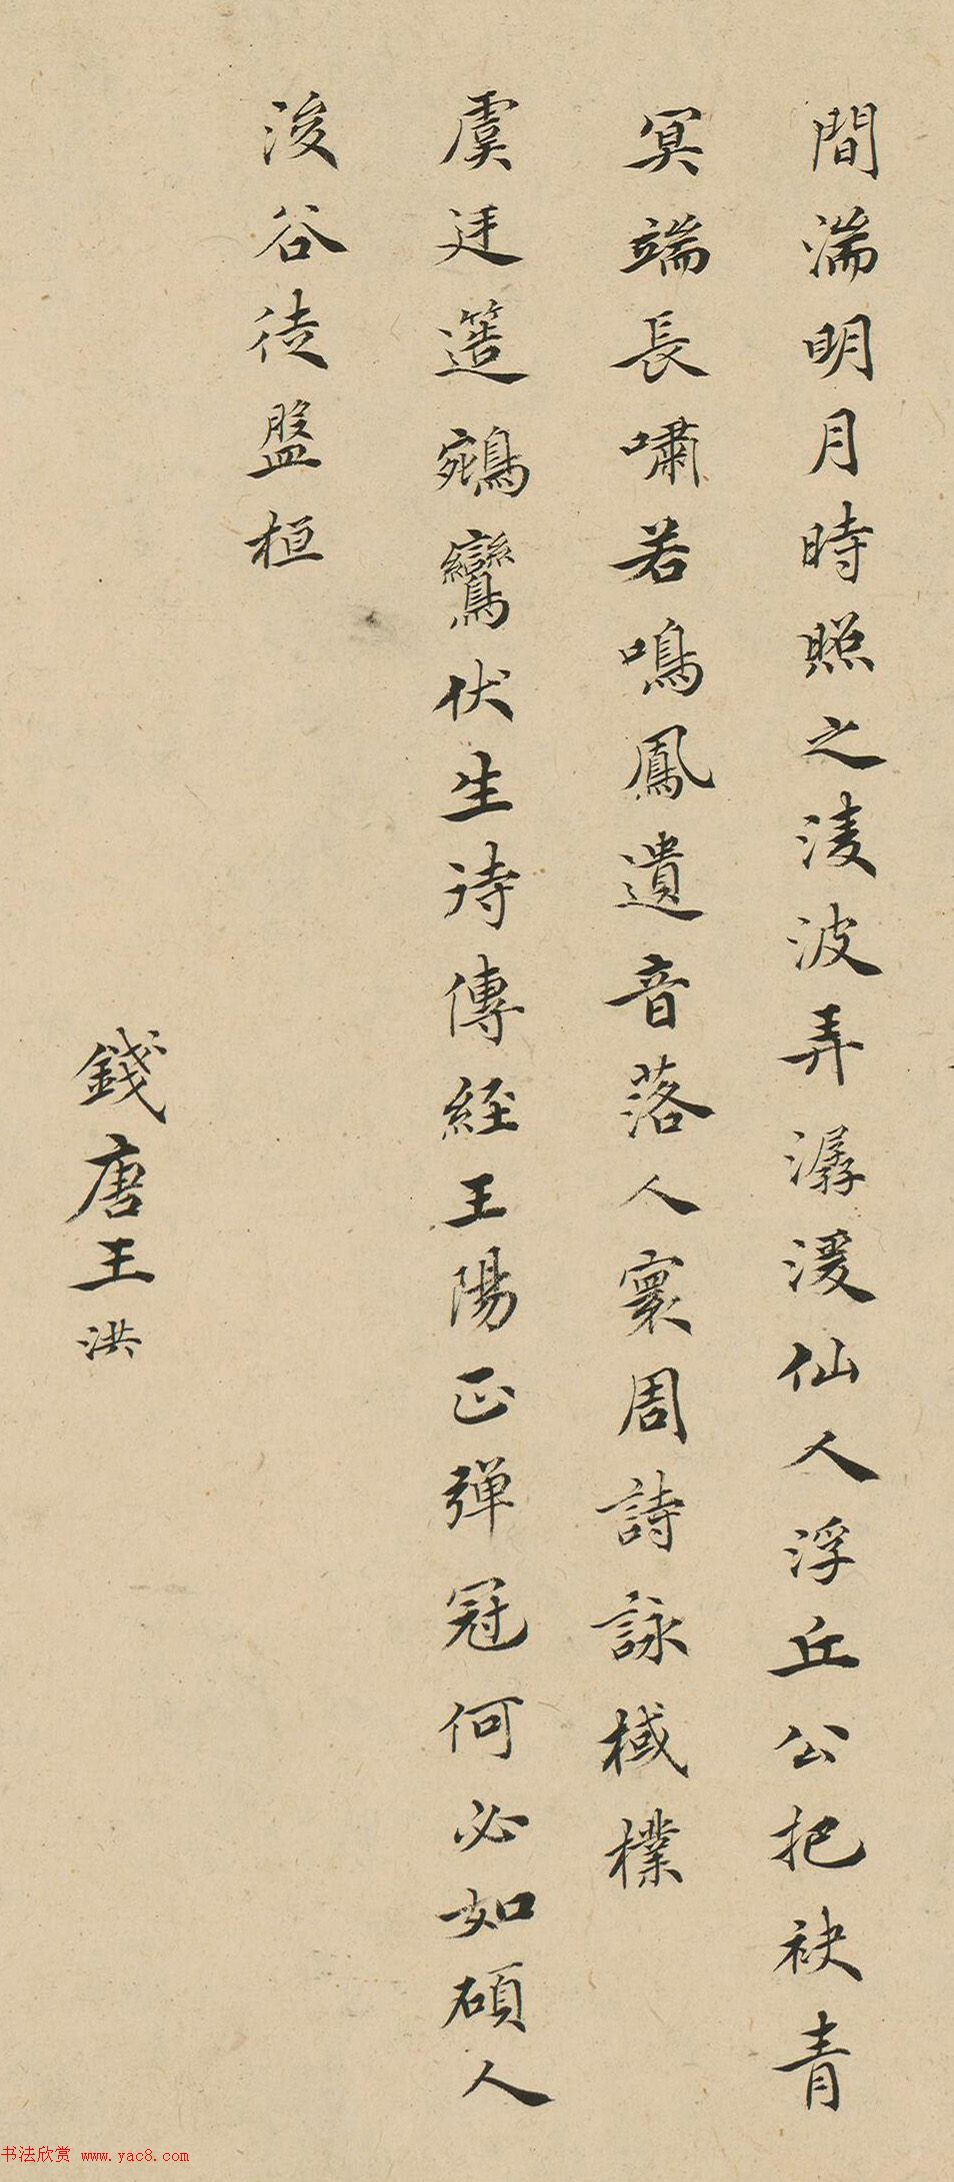 間湍明月時照之淩波弄潺湲仙人浮丘公把袂青
冥端長嘯若鳴鳳遺音落人寰周詩詠棫樸
虞廷簉鵷鸞伏生詩傳經王陽正彈冠何必如碩人
浚谷徒盤桓
錢唐王洪
书法欣赏 www.yac8.com